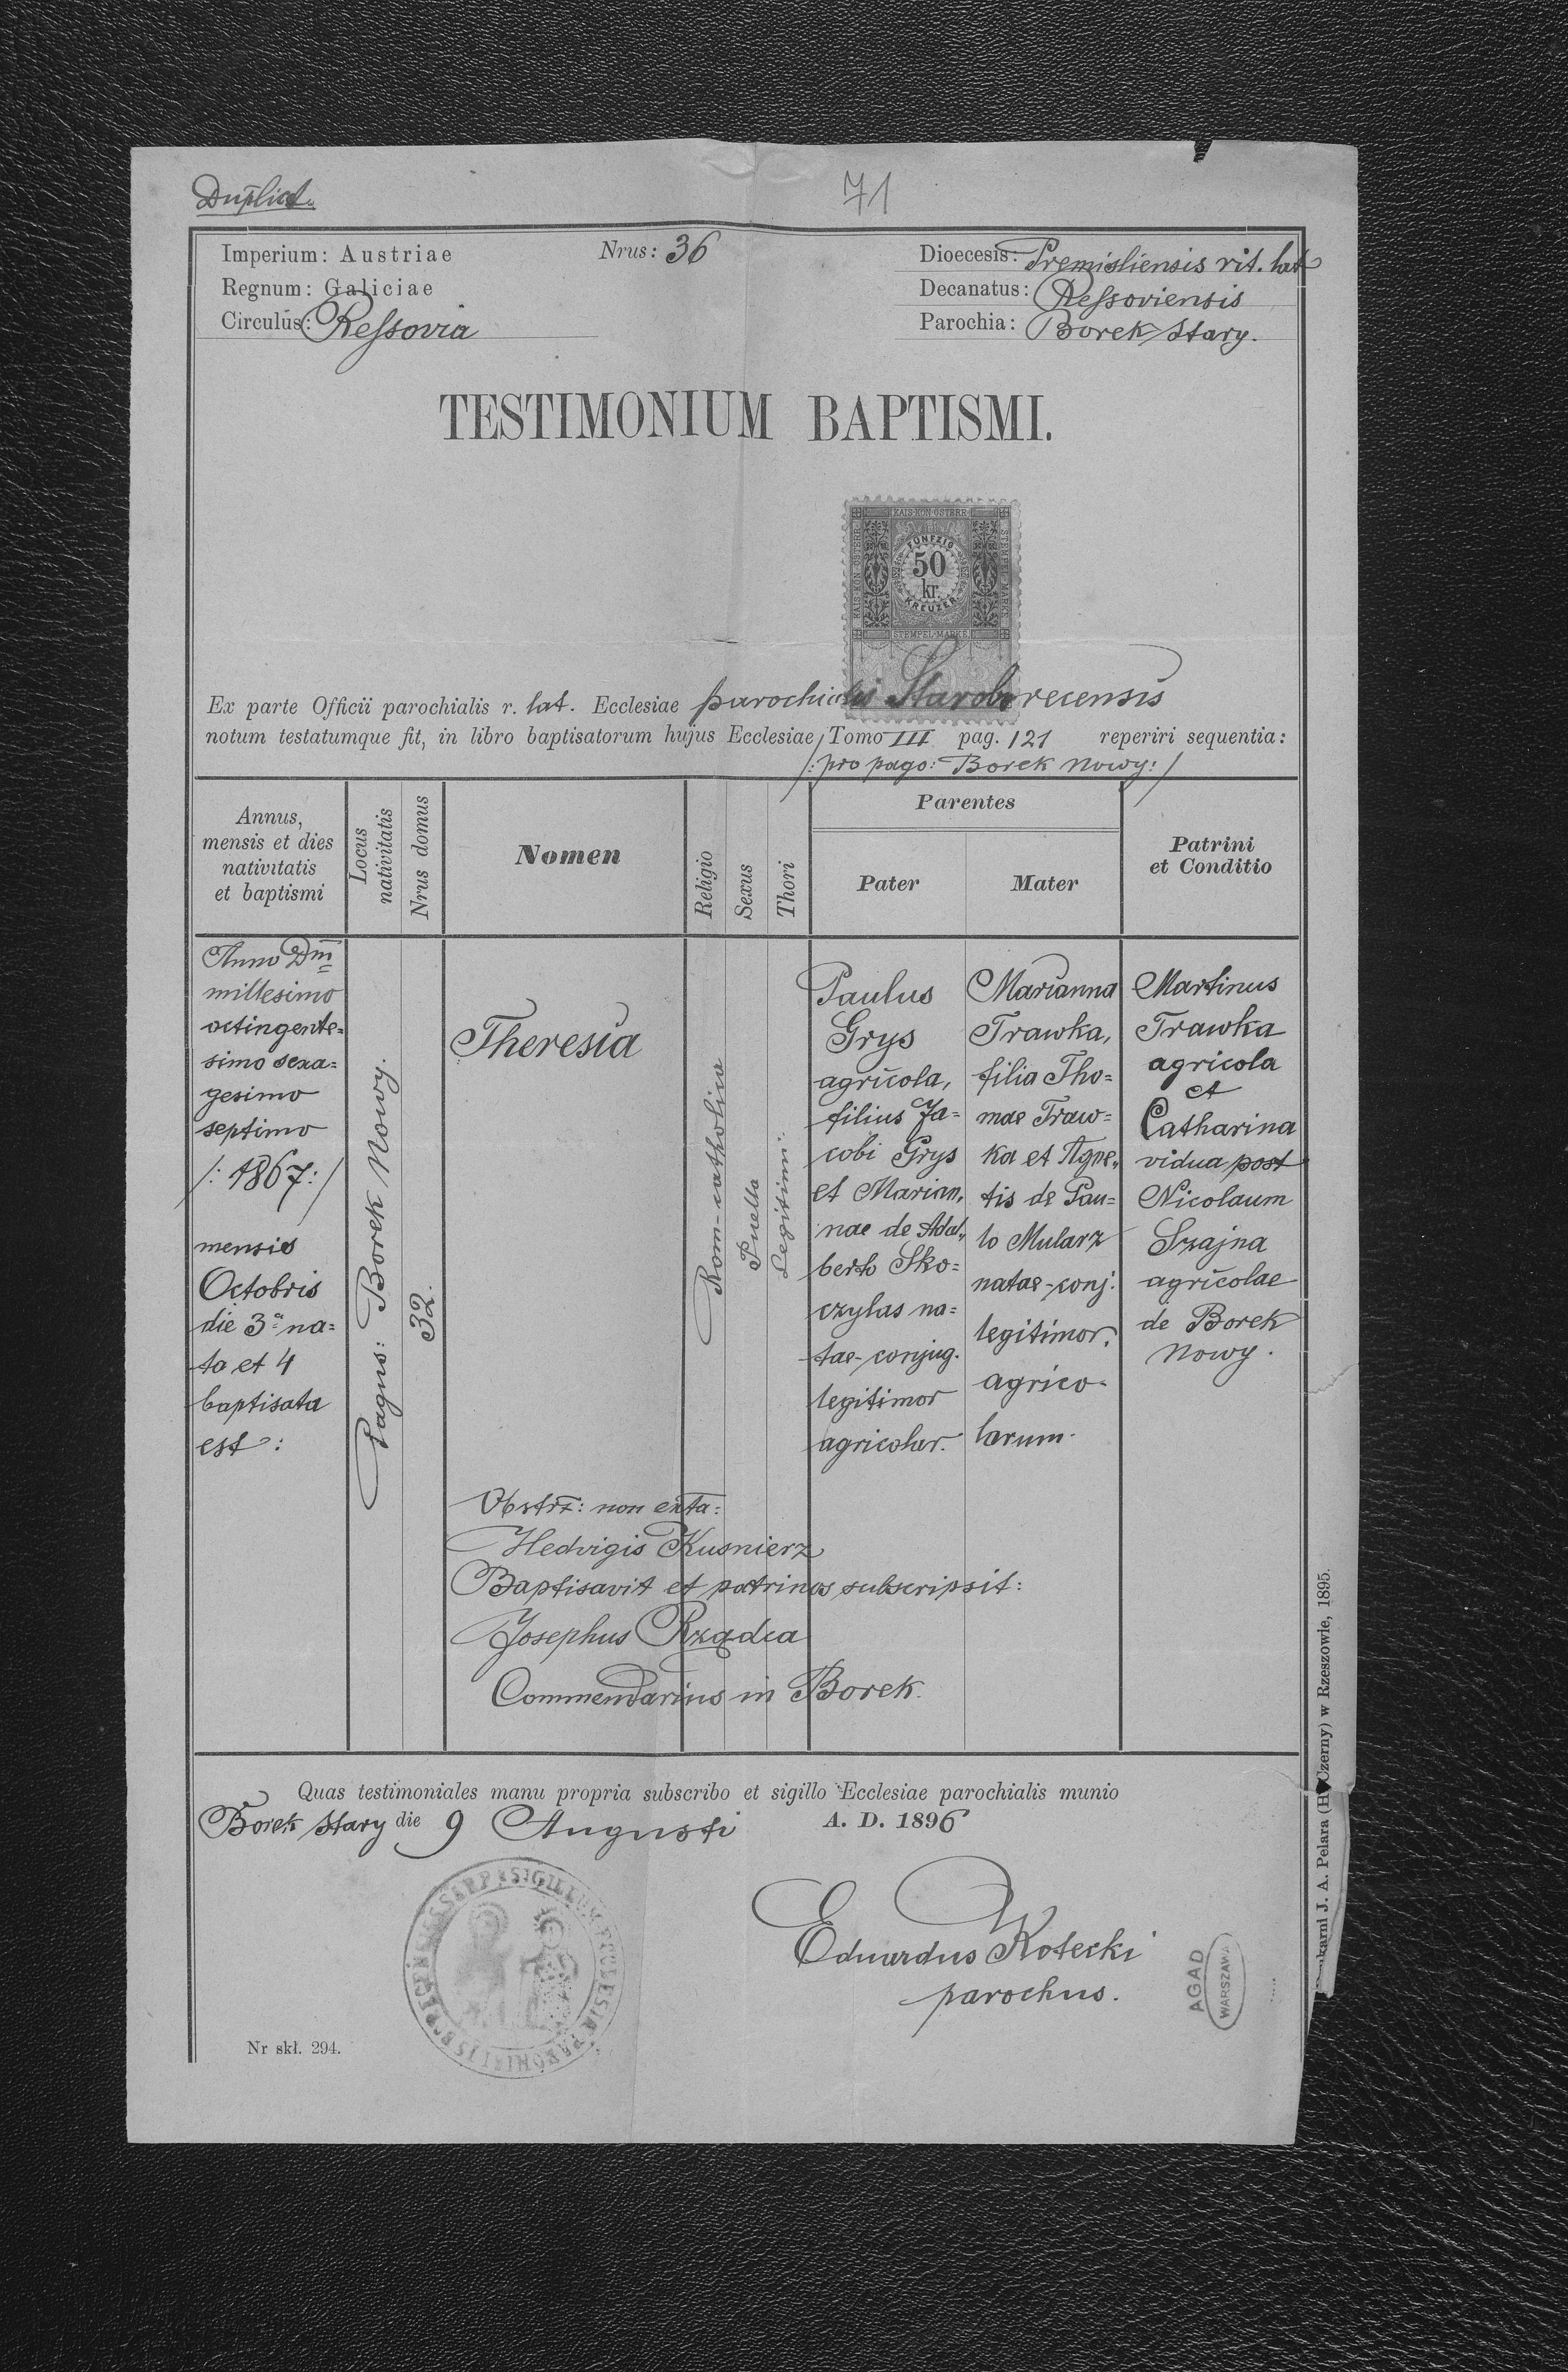 Duplicat.
71
Imperium: Austriae
Nrus: 36
Dioecesis: Premisliensis rit. lat
Regnum: Galiciae
Decanatus: Ressoviensis
Circulus: Ressovia
Parochia: Borek stary.
TESTIMONIUM BAPTISMI.
KAIS·KÖN·ÖSTERR·
FÜNFZIG
50
kr.
KREUZER
STEMPEL-MARKE
Ex parte Officii parochialis r. lat. Ecclesiae parochialis Staroborecensis
notum testatumque fit, in libro baptisatorum hujus Ecclesiae Tomo III pag. 121 reperiri sequentia:
/: pro pago: Borek nowy: /
Annus,
mensis et dies
nativitatis
et baptismi
Locus
nativitatis
Nrus domus
Nomen
Religio
Sexus
Thori
Parentes
Pater
Mater
Patrini
et Conditio
Anno Dm̅
millesimo
octingente=
simo sexa=
gesimo
septimo
/: 1867: /
mensis
Octobris
die 3ª na=
ta et 4
baptisata
est:
Pagus: Borek Nowy.
32.
Theresia
Rom-catholica
Puella
Legitimi.
Paulus
Grys
agricola,
filius Ja=
cobi Grys
et Marian,
nae de Adal,,
berto Sko=
czylas na=
tae-conjug.
legitimor
agricolar.
Marianna
Trawka,
filia Tho=
mae Traw=
ka et Agne,,
tis de Pau=
lo Mularz
natae-conj.
legitimor.
agrico-
larum.
Martinus
Trawka
agricola
et
Catharina
vidua post
Nicolaum
Szajna
agricolae
de Borek
nowy.
Obstrx: non exta:
Hedvigis Kusnierz
Baptisavit et patrinos subscripsit:
Josephus Rządca
Commendarius in Borek.
Quas testimoniales manu propria subscribo et sigillo Ecclesiae parochialis munio
Borek stary die 9 Augusti A. D. 1896
SIGILLUM ECCLESIÆ
Eduardus Kotecki
parochus.
AGAD
WARSZAWA
Nr skł. 294.
J. A. Pelara (H. Czerny) w Rzeszowie, 1895.